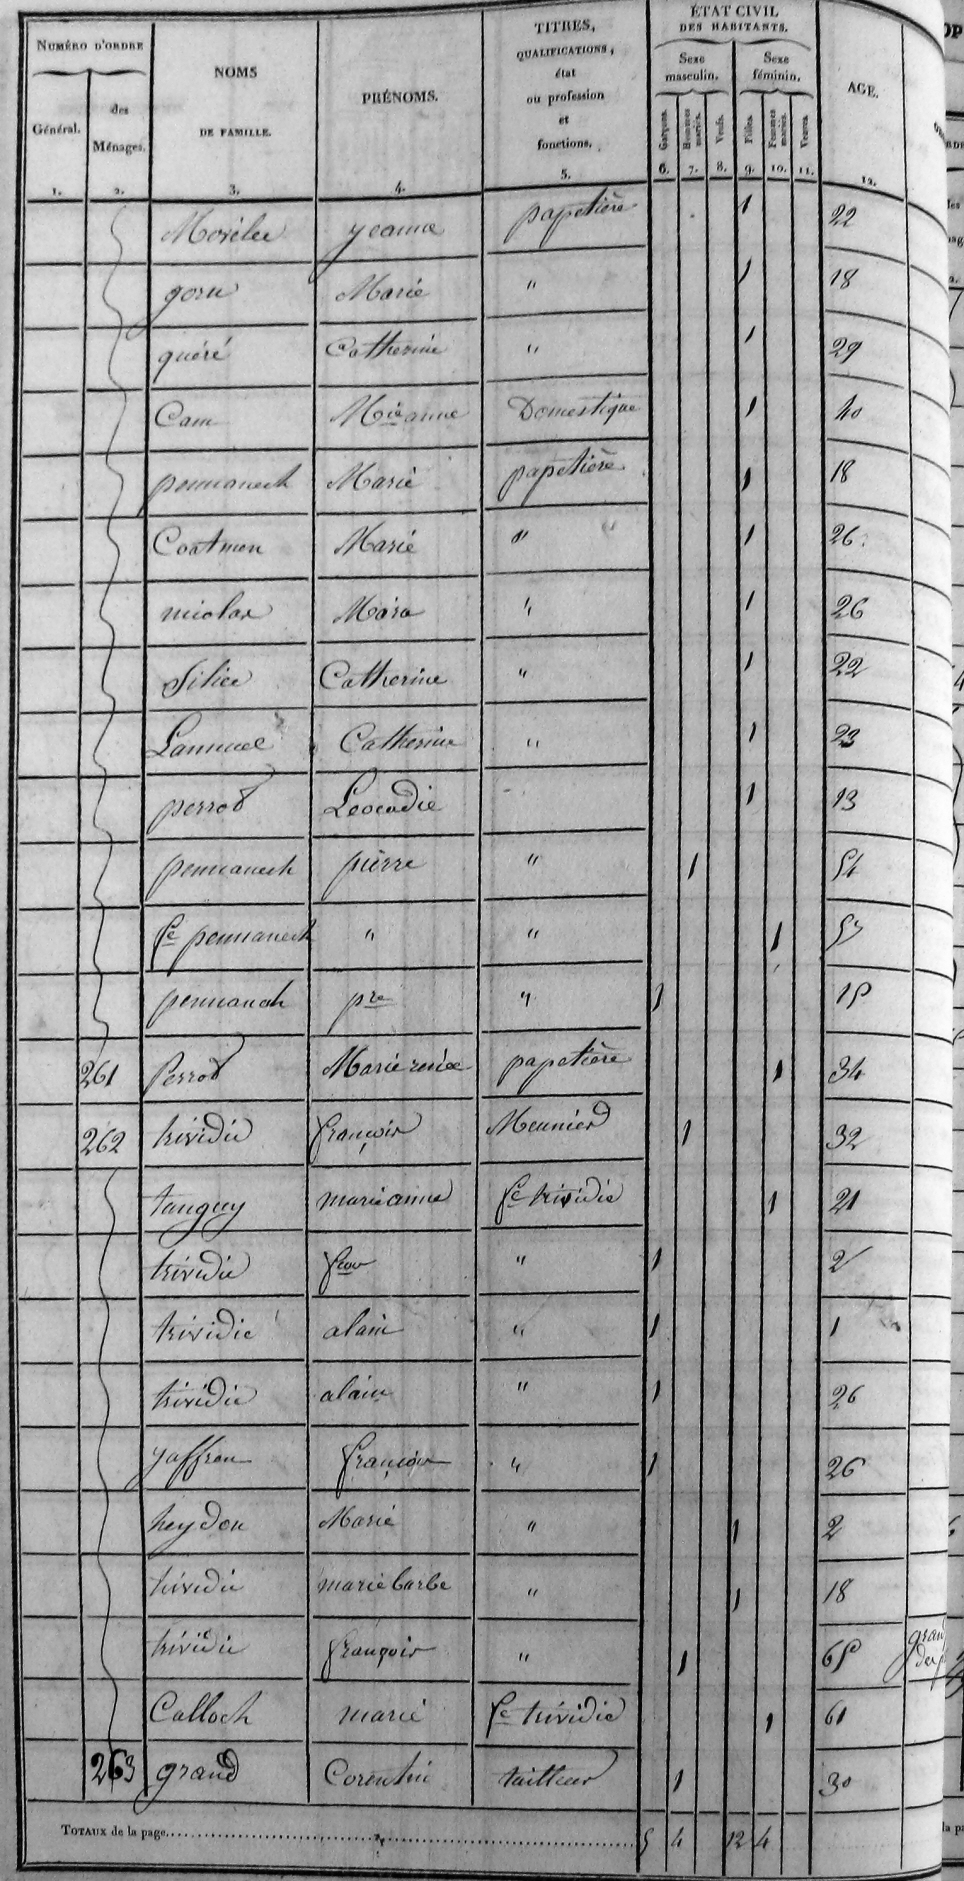 NUMÉRO D'ORDRE
Général.
des Ménages.
NOMS DE FAMILLE.
PRÉNOMS.
TITRES, QUALIFICATIONS, état ou profession et fonctions.
ÉTAT CIVIL DES HABITANTS.
Sexe masculin.
Sexe féminin.
Garçons.
Hommes mariés.
Veufs.
Filles.
Femmes mariées.
Veuves.
AGE.
1. 2. 3. 4. 5. 6. 7. 8. 9. 10. 11. 12.
yeanne papetière 1 22
Marie " 1 18
quéré Catherine " 1 29
Cam Mie anne Domestique 1 40
pennanech Marie papetière 1 18
Coatmen Marie " 1 26
nicolas " 1 26
Catherine " 1 22
Lannuel Catherine " 1 23
perrod Leocadie 1 13
pennanech pierre " 1 54
fe pennanech " " 1
pennanech pre " 1 15
261 Perrod Marie renée papetière 1 34
262 trividic françois Meunier 1 32
tanguy marianne fe trividic 1 21
trividic " 1 2
trividic alain " 1 1
trividic alain " 1 26
yaffren françois " 1 26
heydon Marie " 1 2
trividic marie barbe " 1 18
trividic françois " 1 65
Calloch marie fe trividic 1 61
263 grand Corentin tailleur 1 30
TOTAUX de la page 5 4 12 4